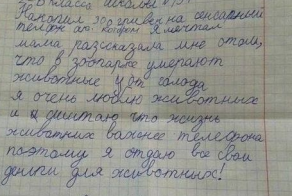 класса школы
Накопил 300 гривен на сенсорный
телефон о котором я мечтал
мама рассказала мне о том,
что в зоопарке умерают
животные от голода
я очень люблю животных
и я щитаю что жизнь
животних важнее телефона
поэтому я отдаю все свои
деньги для животных!